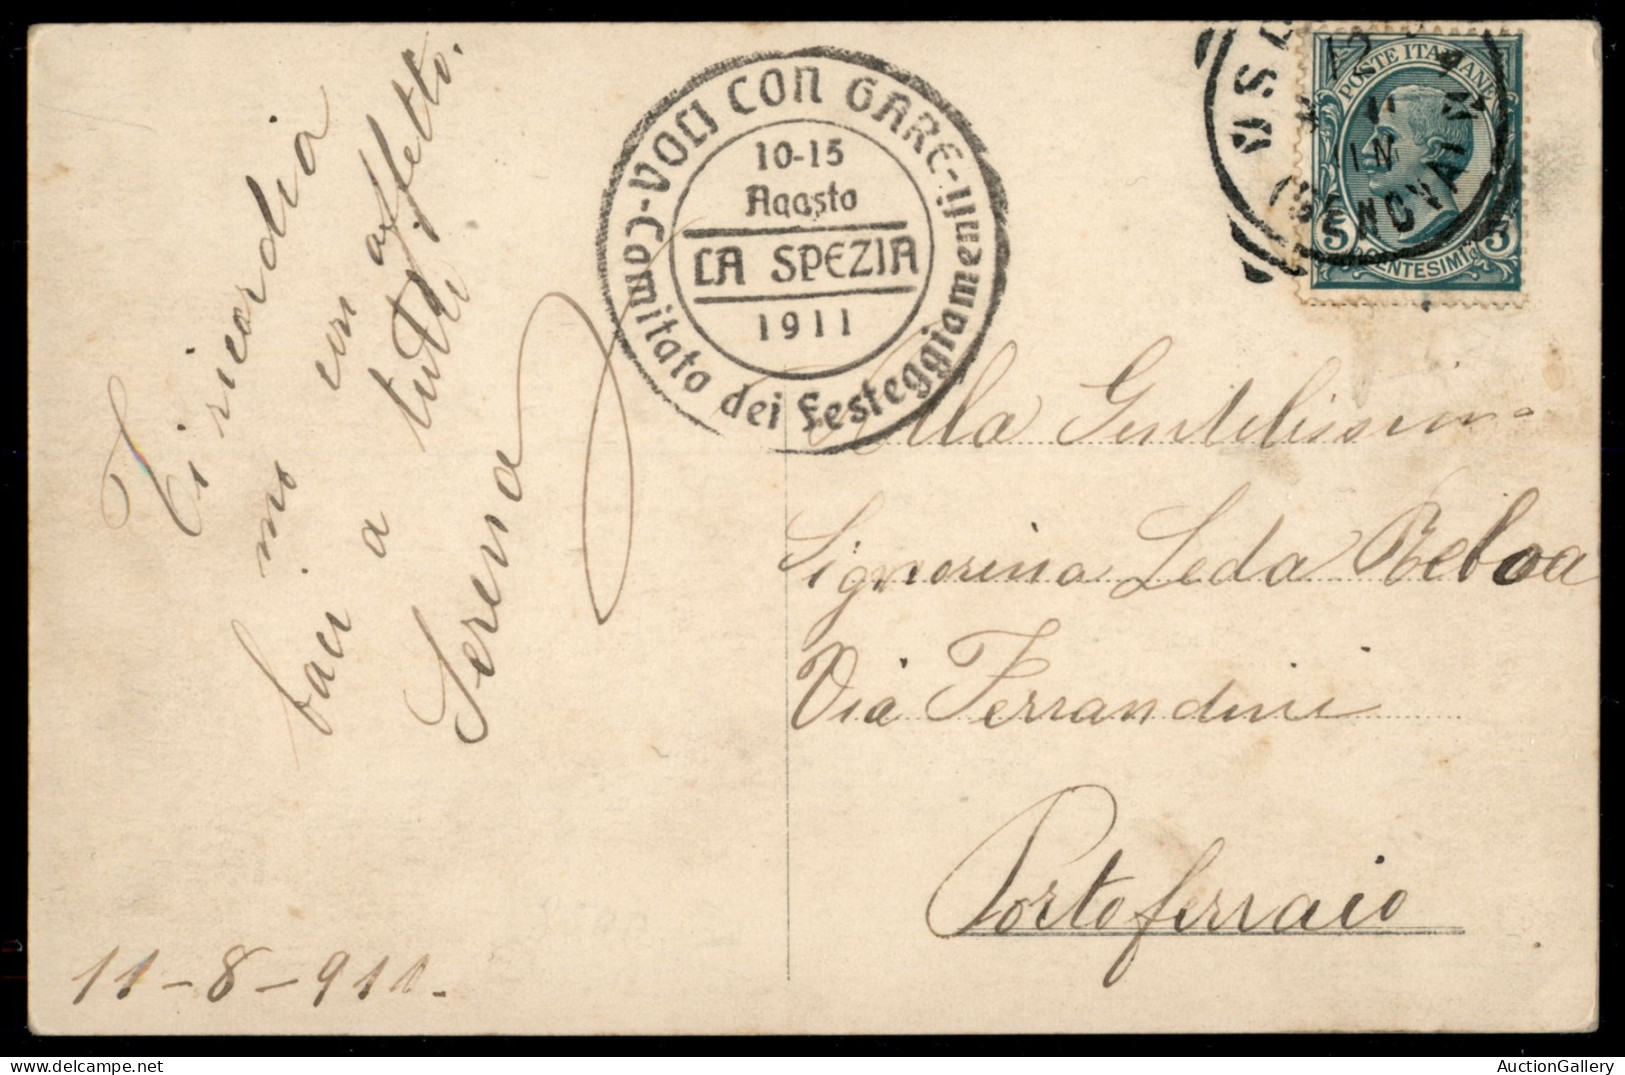 Ti ricordia
mo con affetto.
baci a tutti
Serena
11-8-911.
VOLI CON GARE
10-15
Agosto
LA SPEZIA
1911
Comitato dei Festeggiamenti
POSTE ITALIANE
5 CENTESIMI 5
Alla Gentilissim-
Signorina Leda
Via Ferrandini
Portoferraio
AuctionGallery